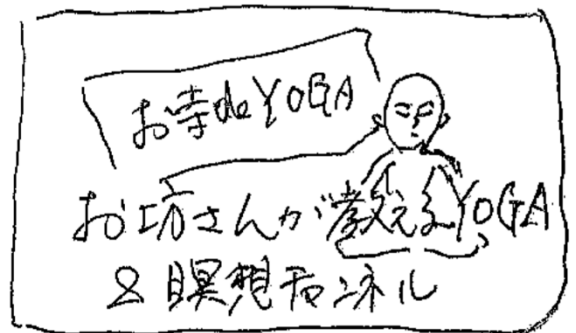 お寺deYOGA
お坊さんが教えるYOGA
&瞑想チャンネル